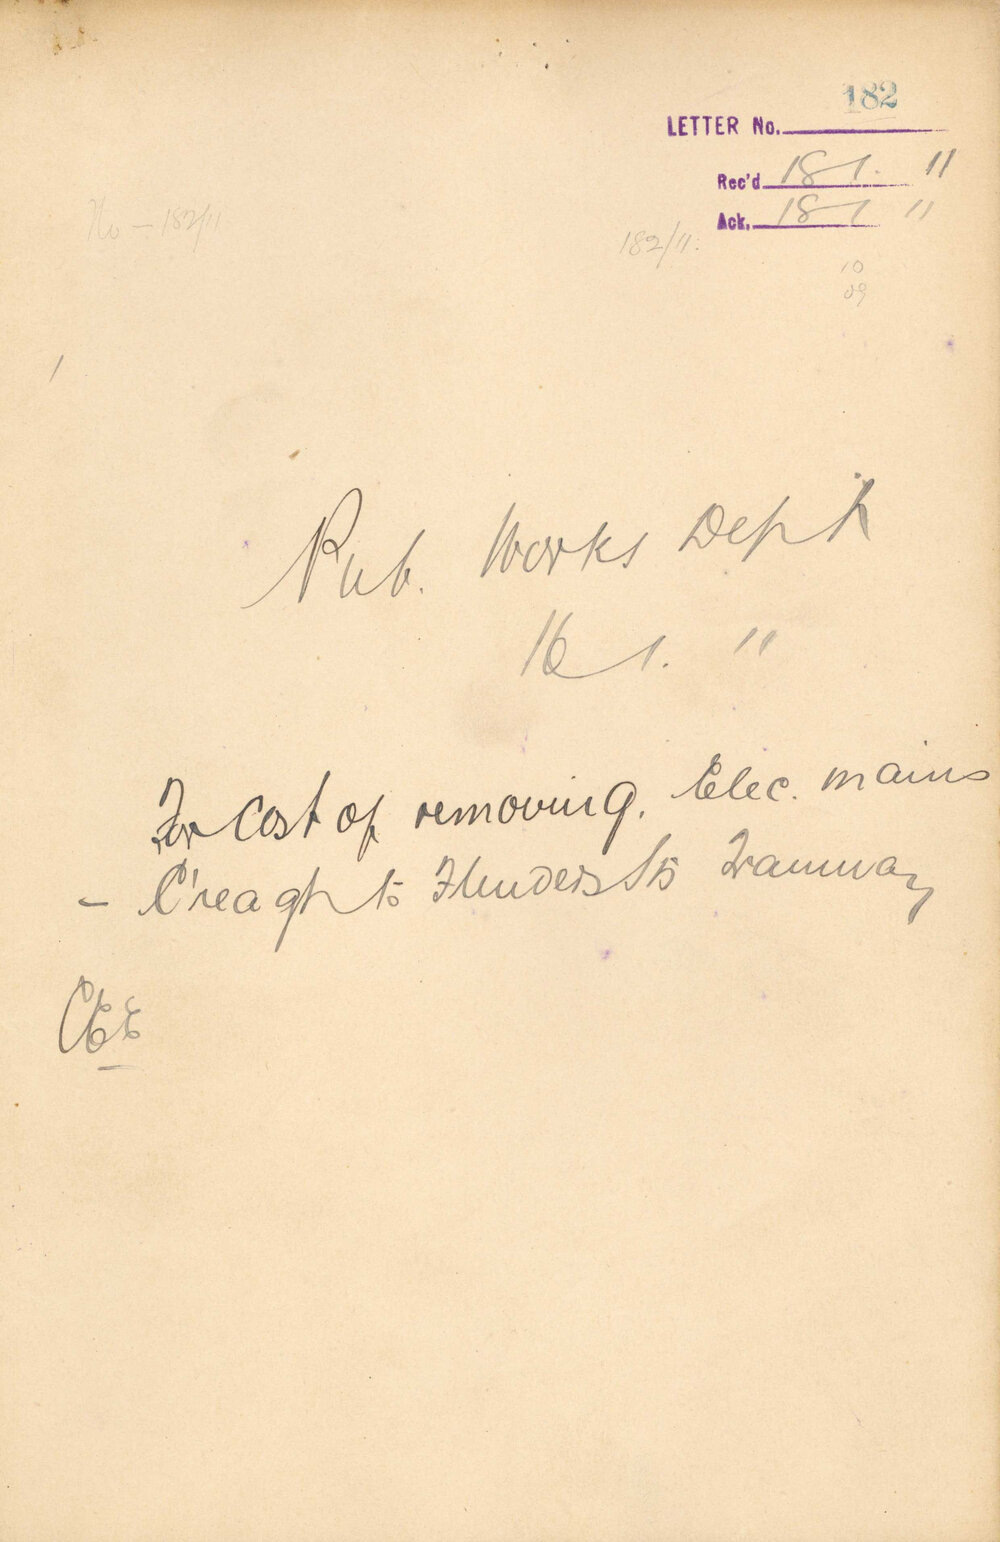 182
LETTER No.
Rec'd 18 1. 11
Ack. 18 1 11
No - 182/11
182/11.
10
09
Pub. Works Dept
16 1. 11
For Cost of removing. Elec. mains
- Creagh to Flinders Sts Tramway
CEE